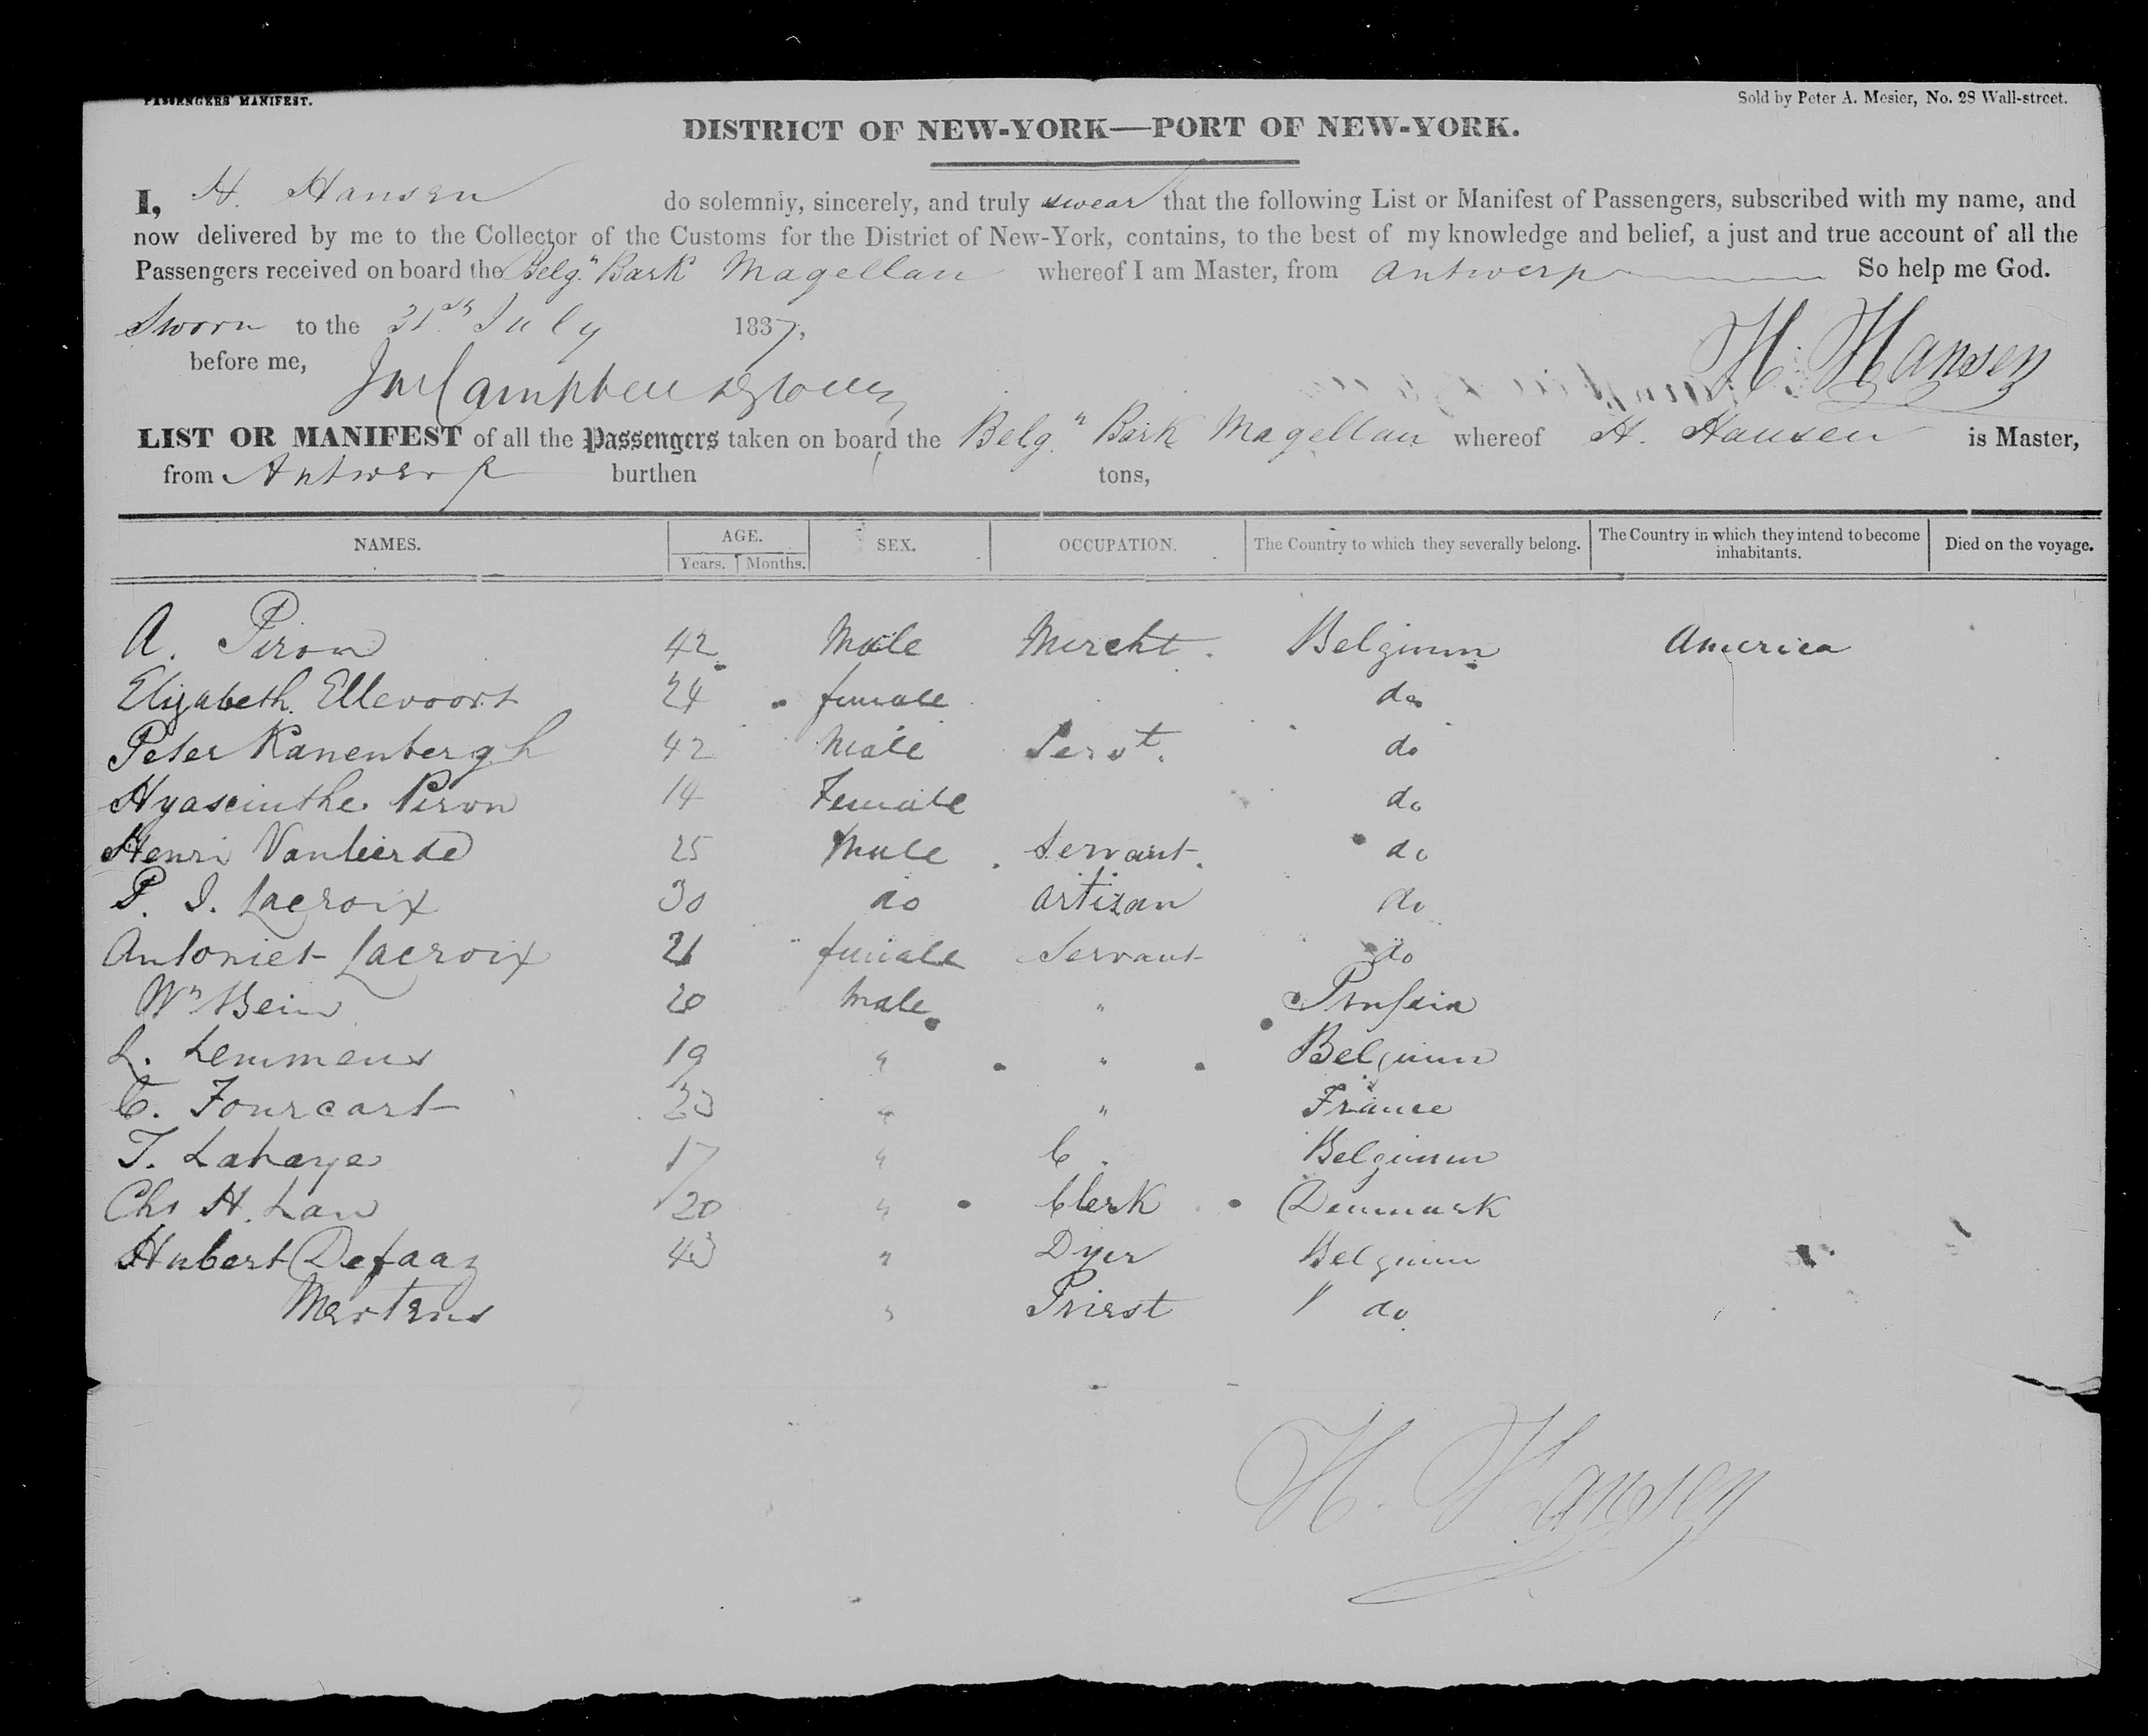 PASSENGERS' MANIFEST.
Sold by Peter A. Mesier, No. 28 Wall-street.
DISTRICT OF NEW-YORK—PORT OF NEW-YORK.
I, H. Hansen do solemnly, sincerely, and truly swear that the following List or Manifest of Passengers, subscribed with my name, and
now delivered by me to the Collector of the Customs for the District of New-York, contains, to the best of my knowledge and belief, a just and true account of all the
Passengers received on board the Belgn Bark Magellan whereof I am Master, from Antwerp So help me God.
Sworn to the 21st July 1837,
before me, H. Hansen
LIST OR MANIFEST of all the Passengers taken on board the Belgn Bark Magellan whereof H. Hansen is Master,
from Antwerp burthen tons,
NAMES. AGE. Years. Months. SEX. OCCUPATION. The Country to which they severally belong. The Country in which they intend to become inhabitants. Died on the voyage.
A. Piron 42 Male Mercht. Belgium America
Elizabeth Ellevoort 24 female do
Peter Kanenbergh 42 Male Servt. do
Hyascinthe Piron 14 Female do
Henri Vanlierde 25 Male Servant do
P. I. Lacroix 30 do artizan do
Antoniet Lacroix 21 female Servant do
Wm Bein 20 Male " Prussia
L. Lemmens 19 " " Belgium
C. Fourcart 23 " " France
T. Lahaye 17 " C. Belgium
Chs H. Law 20 " Clerk Denmark
Hubert Defaaz 43 " Dyer Belgium
Mertens " Priest " do
H. Hansen